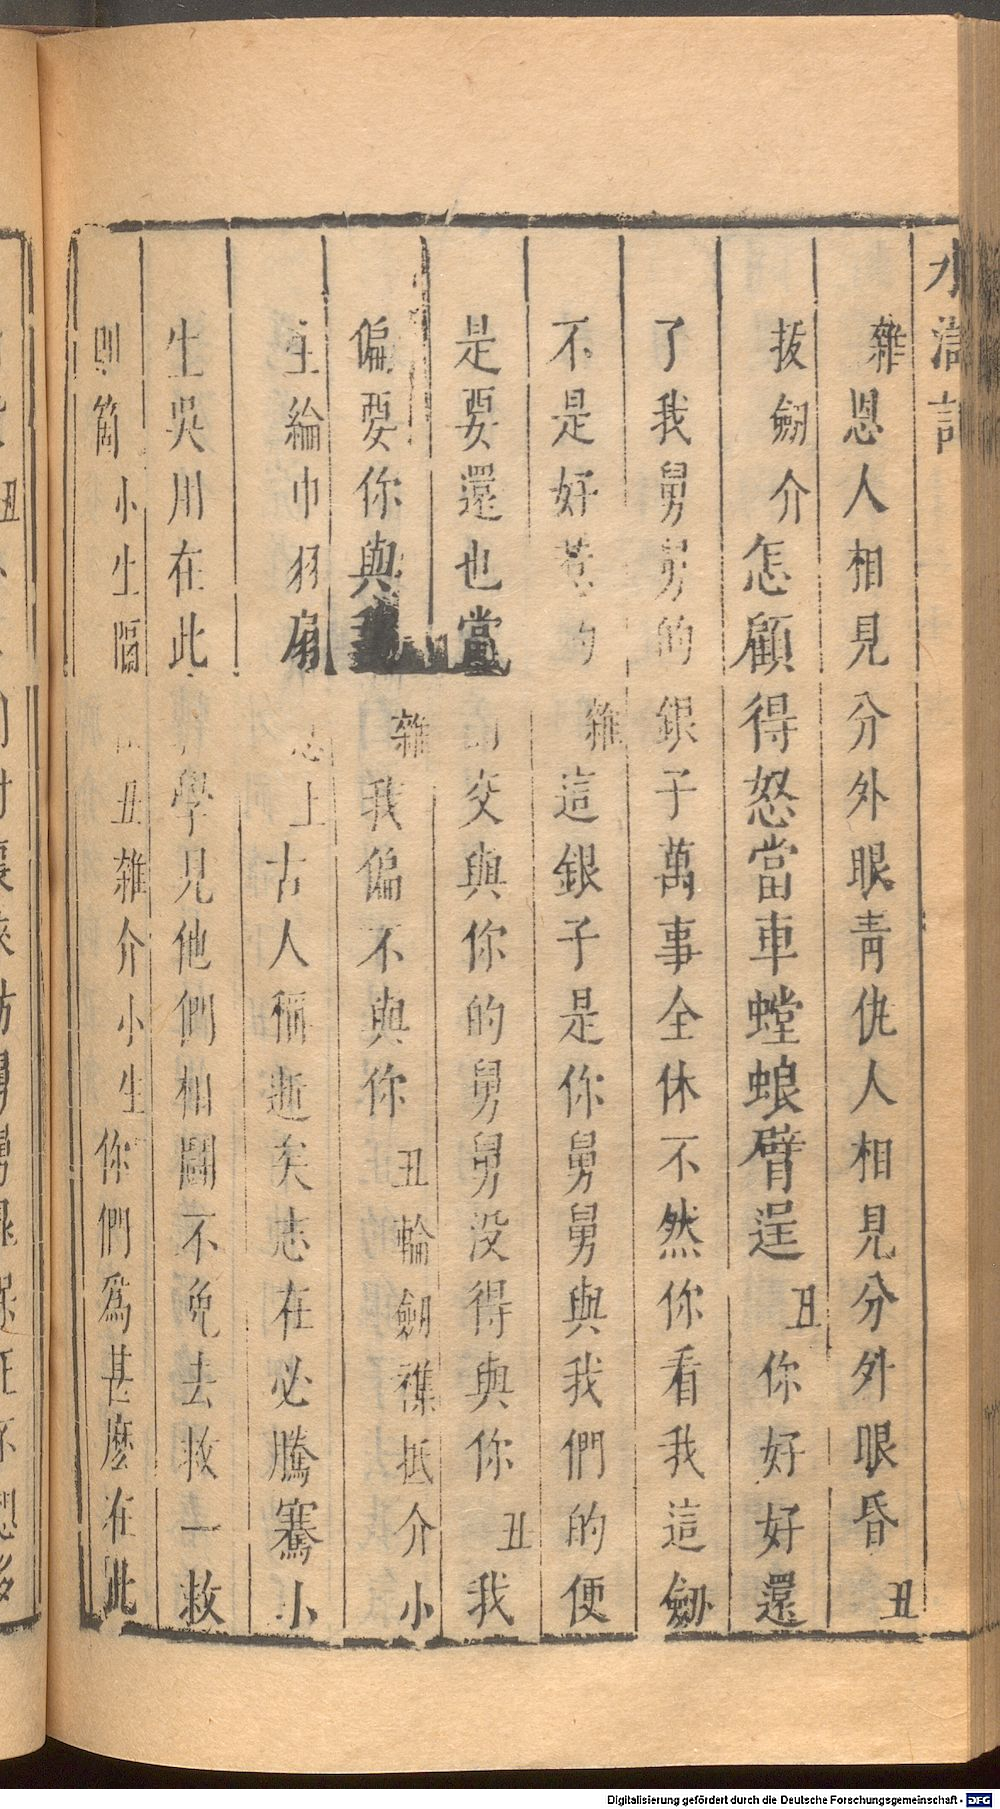 水滸記
雜恩人相見分外眼青仇人相見分外眼昏丑
拔劒介怎顧得怒當車螳蜋臂逞丑你好好還
了我舅舅的銀子萬事全休不然你看我這劒
不是好惹的雜這銀子是你舅舅與我們的便
是要還也當交與你的舅舅没得與你丑我
偏要你與雜我偏不與你丑輪劒襍抵介小
生綸巾羽扇上古人稱逝矣志在必騰騫小
生吳用在此學見他們相鬭不免去救一救
則箇小生隔丑雜介小生你們爲甚麽在此
Digitalisierung gefördert durch die Deutsche Forschungsgemeinschaft - DFG